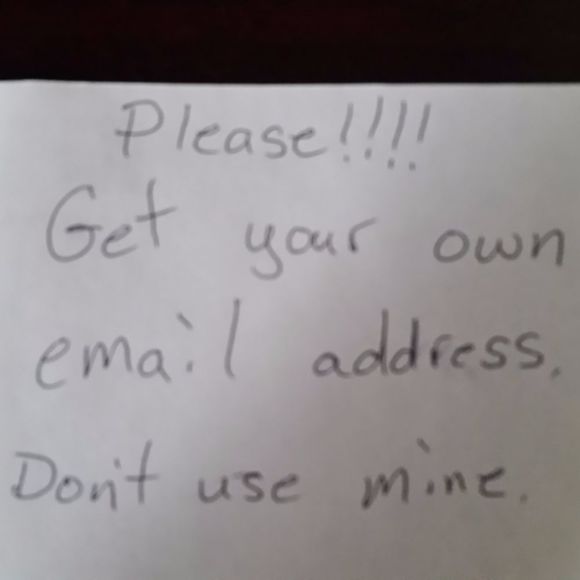 Please!!!!
Get your own
email address.
Don't use mine.